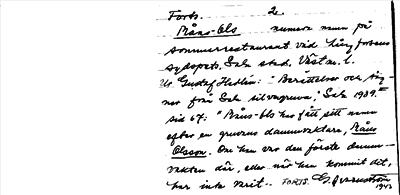 Forts. 2.
Måns-Ols numera namn på
sommarrestaurant vid Långforsens
sydspets. Sala stad, Västm. l.
Ur Gustaf Hedlin: "Berättelser och säg-
ner från Sala silvergruva," Sala 1939.
sid 67: "Måns-Ols har fått sitt namn
efter en gruvans dammvaktare, Måns
Olsson. Om han var den förste damm-
vakten där, eller när han kommit dit,
har inte varit.. FORTS.
1943